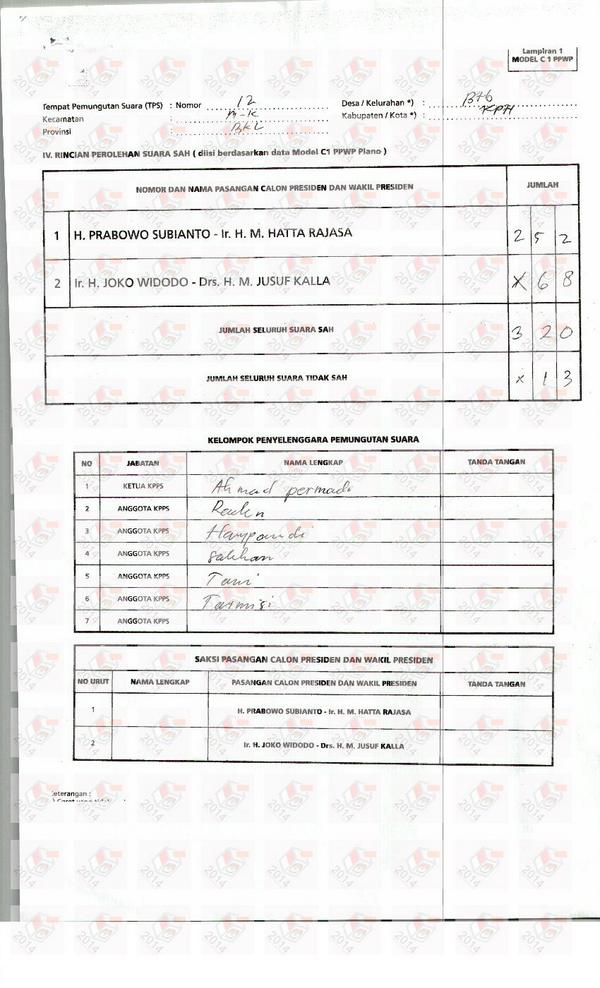 Lampiran 1
MODEL C 1 PPWP
Tempat Pemungutan Suara (TPS) : Nomor 12 Desa / Kelurahan *) :
Kecamatan : M-K Kabupaten / Kota *) : KPH
Provinsi : BKL
IV. RINCIAN PEROLEHAN SUARA SAH ( diisi berdasarkan data Model C1 PPWP Plano )
NOMOR DAN NAMA PASANGAN CALON PRESIDEN DAN WAKIL PRESIDEN JUMLAH
1 H. PRABOWO SUBIANTO - Ir. H. M. HATTA RAJASA 2 5 2
2 Ir. H. JOKO WIDODO - Drs. H. M. JUSUF KALLA X 6 8
JUMLAH SELURUH SUARA SAH 3 2 0
JUMLAH SELURUH SUARA TIDAK SAH X 1 3
KELOMPOK PENYELENGGARA PEMUNGUTAN SUARA
NO JABATAN NAMA LENGKAP TANDA TANGAN
1 KETUA KPPS Ahmad permadi
2 ANGGOTA KPPS
3 ANGGOTA KPPS
4 ANGGOTA KPPS
5 ANGGOTA KPPS Tami
6 ANGGOTA KPPS Tarmisi
7 ANGGOTA KPPS
SAKSI PASANGAN CALON PRESIDEN DAN WAKIL PRESIDEN
NO URUT NAMA LENGKAP PASANGAN CALON PRESIDEN DAN WAKIL PRESIDEN TANDA TANGAN
1 H. PRABOWO SUBIANTO - Ir. H. M. HATTA RAJASA
2 Ir. H. JOKO WIDODO - Drs. H. M. JUSUF KALLA
eterangan :
2014